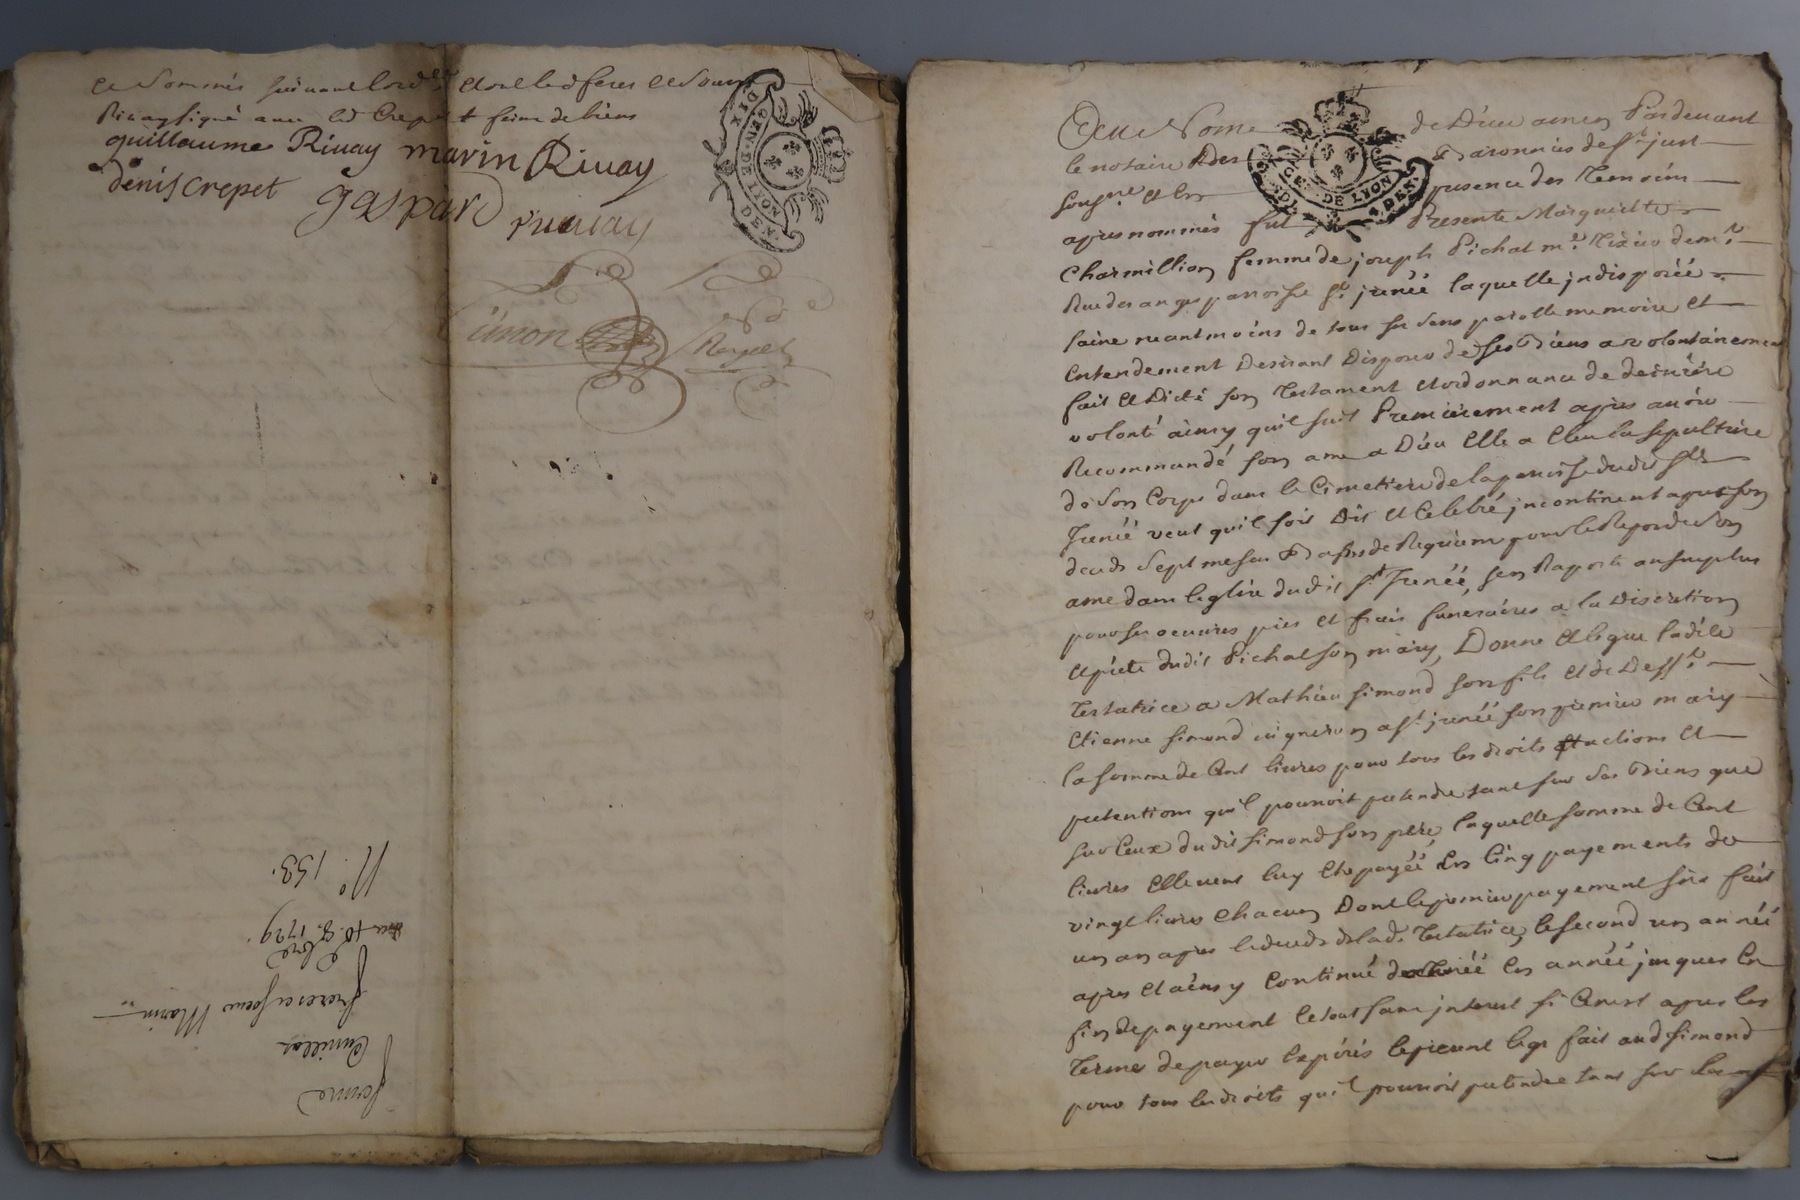 et sommés suivant l'ord.ce et ont led freres et soeur
Rivay signé avec led Crepet
guillaume Rivay marin Rivay
denis crepet gaspard rivay
DIX DEN.
GEN. DE LYON
Simon
N.° 153.
8. 1729.
freres et soeur Marin
Au Nome de Dieu amen Pardevant
le notaire des Baronnies de St just
sousne. et en presence des temoins
apres nommés fut Presente Marguelitte
Charmillion femme de joseph Pichat me.
Rue des anges parroisse St jrenéé laquelle jndisposéé
saine neantmoins de tous ses sens parolle memoire et
entendement desirant disposer de ses biens a volontairement
fait et dicté son testament et ordonnance de derniere
volonté ainsy qu'il suit Premierement apres avoir
Recommandé son ame a Dieu Elle a Eleu la sepulture
de son Corps dans le Cimetiere de la paroisse dudit St
Jrenéé veut qu'il soit dit et Celebré jncontinent apres son
deceds sept messes basses de Requiem pour le Repos de son
ame dans leglise dudit St Jrenéé, sen Raporte au surplus
pour ses oeuvres pies et frais funeraires a la discretion
et pieté dudit Pichat son mary, Donne et legue ladite
testatrice a Mathieu simond son fils et de deff.t
etienne simond vigneron a St jrenéé son premier mary
la somme de Cent livres pour tous les droits et actions et
pretentions qu'il pourroit pretendre tant sur ses biens que
sur Ceux dudit simond son pere, laquelle somme de Cent
livres Elle veut luy etre payéé en Cinq payements de
vingt livres chacun dont le premier payement sera fait
un an apres le deceds de lad. testatrice, le second un annéé
apres et ainsy continué dannéé en annéé jusques en
fin de payement le tout sans jnterest si Ce nest apres les
termes de payer Expirés le present legs fait aud simond
pour tous les droits qu'il pourroit pretendre tant sur les
GE. DE LYON